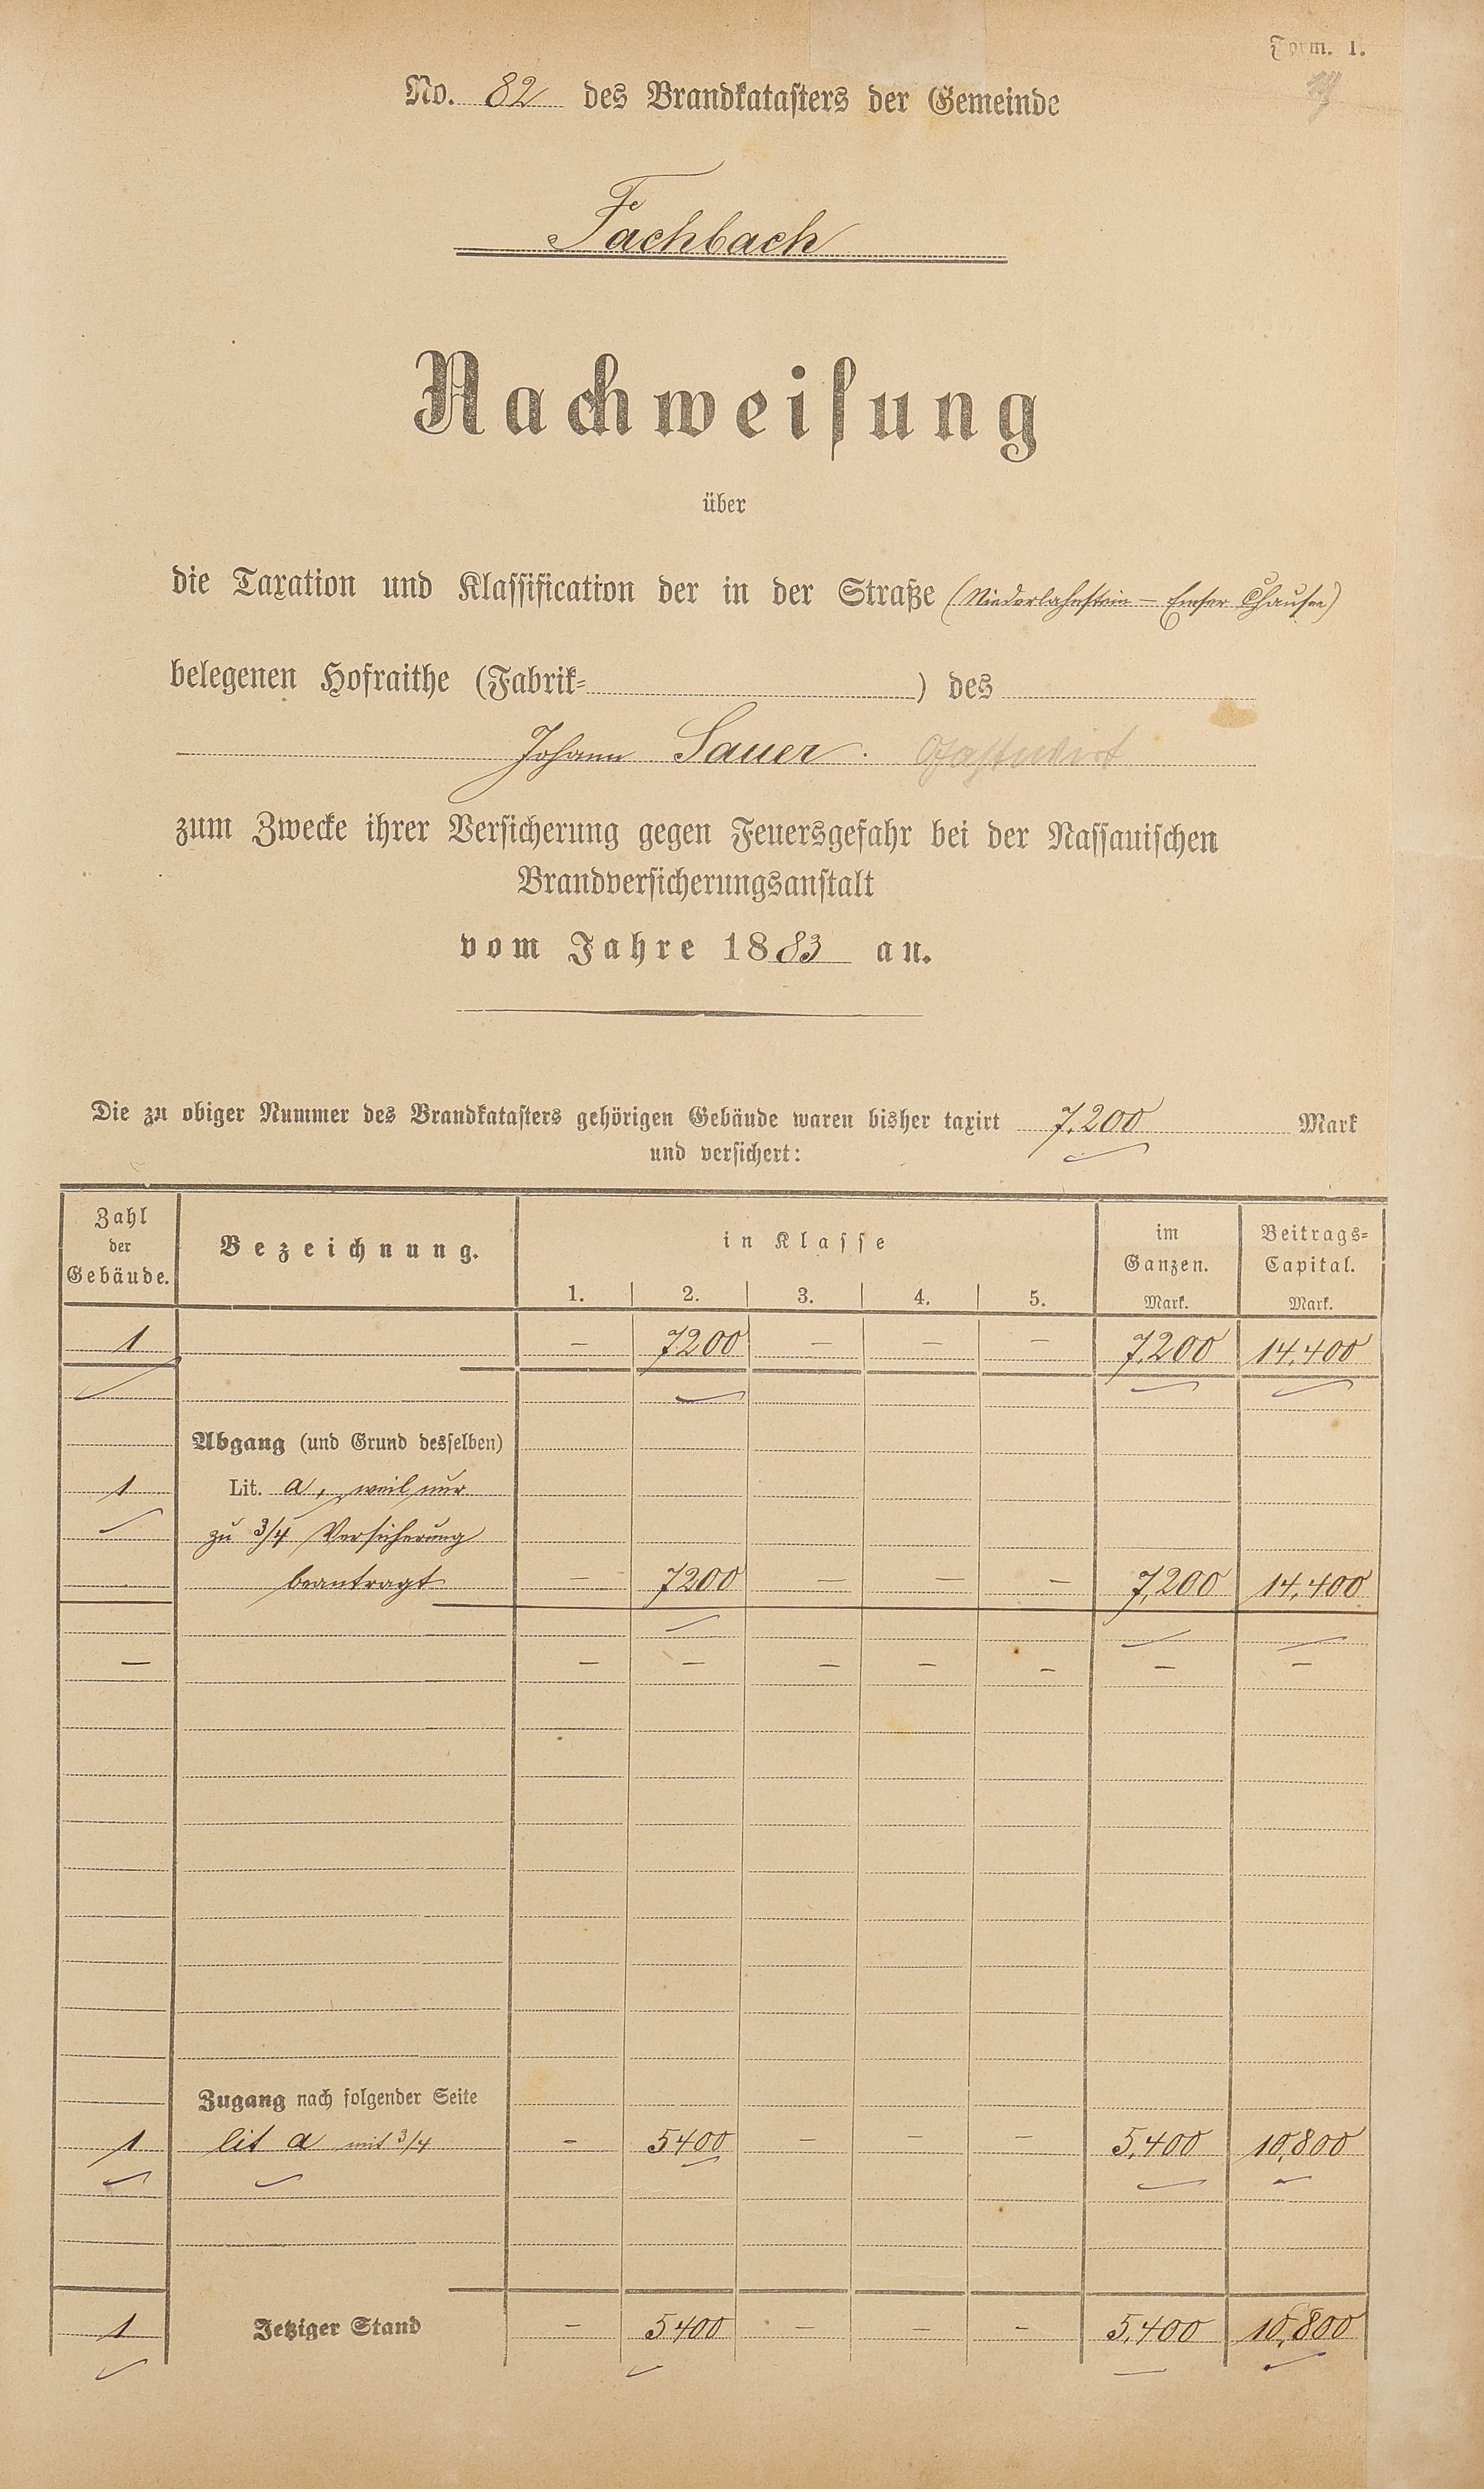 Form. 1.
No. 82 des Brandkatasters der Gemeinde
Fachbach
Nachweisung
über
die Taxation und Klassification der in der Straße (Niederlahnstein – Emser Chausee)
belegenen Hofraithe (Fabrik- ) des
Johann Sauer. Gastwirt
zum Zwecke ihrer Versicherung gegen Feuersgefahr bei der Nassauischen
Brandversicherungsanstalt
vom Jahre 1883 an.
Die zu obiger Nummer des Brandkatasters gehörigen Gebäude waren bisher taxirt 7,200 Mark
und versichert:
Zahl der Gebäude. Bezeichnung. in Klasse im Ganzen. Beitrags-Capital.
1. 2. 3. 4. 5. Mark. Mark.
1 – 7200 – – – 7,200 14,400
Abgang (und Grund desselben)
1 Lit. a, weil nur
zu 3/4 Versicherung
beantragt – 7200 – – – 7,200 14,400
– – – – – – – –
Zugang nach folgender Seite
1 lit a mit 3/4 – 5400 – – – 5,400 10,800
1 Jetziger Stand – 5400 – – – 5,400 10,800